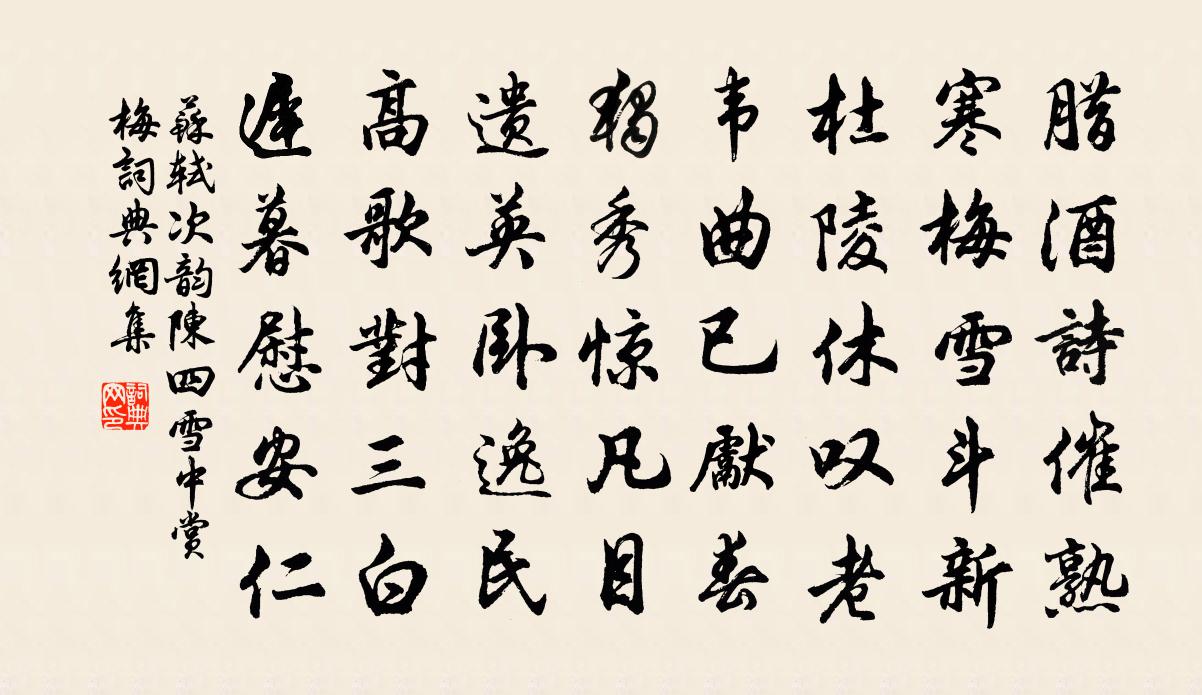 腊酒詩催熟
寒梅雪斗新
杜陵休叹老
韦曲已獻春
獨秀惊凡目
遗英卧逸民
高歌對三白
遲暮慰安仁
蘇轼次韵陳四雪中赏
梅詞典網集
詞典网印